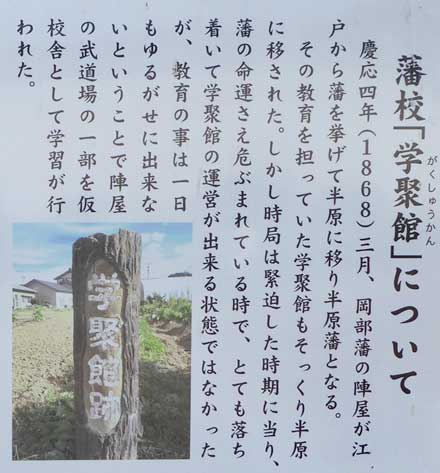 藩校「学聚館」について
がくしゅうかん
慶応四年(1868)三月、岡部藩の陣屋が江
戸から藩を挙げて半原に移り半原藩となる。
その教育を担っていた学聚館もそっくり半原
に移された。しかし時局は緊迫した時期に当り、
藩の命運さえ危ぶまれている時で、とても落ち
着いて学聚館の運営が出来る状態ではなかった
が、教育の事は一日
もゆるがせに出来な
いということで陣屋
の武道場の一部を仮
校舎として学習が行
われた。
学聚館跡